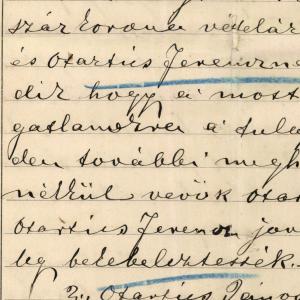 száz korona vételár
és Otartics Ferencz
dix hogy a most
gatlanokra a tula
den további megh
nélkül vevők Otar
Otartics Ferencz jav
leg bekebeleztessék.
2., Otartics János